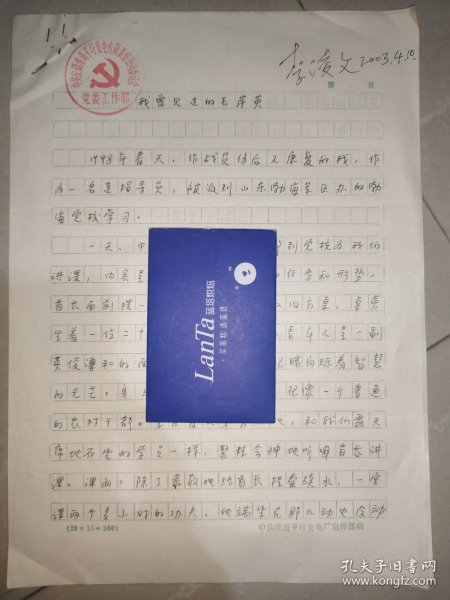 李凌文 2003.4.10.
党委工作部
第 页
我曾见过的毛岸英
1948年春天，作战负伤后又康复的我，作
为一名连指导员，被派到山东渤海军区办的渤
海党校学习。
一天，中 到党校为我们
讲课，内容是 任务和形势。
首长面前摆一 的方桌，桌旁
坐着一位二十 青年人是一副
英俊谦和的面 睛闪烁着智慧
的光芒，身 很像一个普通
的农村干部。 和我们露天
席地而坐的学员一样，聚精会神地听首长讲
课。课间，除了 地给首长 续水，一堂
课两个多小时的功夫，他端坐在那儿动也没动
(20×15=300)
中共淮南平圩发电厂宣传部稿
LanTa 蓝塔烘焙
·买蛋糕 选蓝塔·
孔夫子旧书网